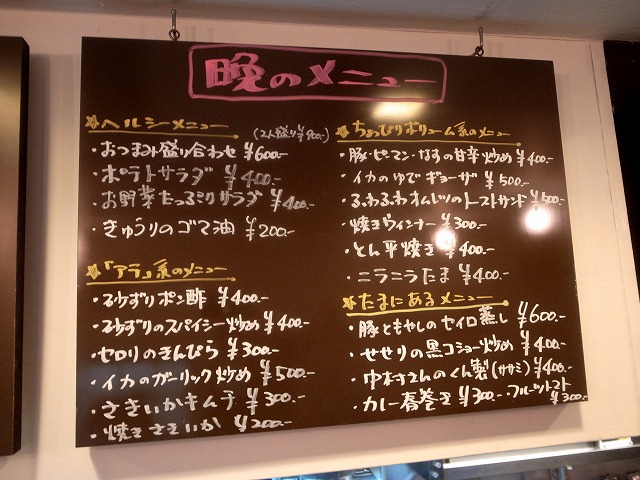 晩のメニュー
☆ヘルシーメニュー
(2人盛り¥900.-)
・おつまみ盛り合わせ ¥600.-
・ポテトサラダ ¥400.-
・お野菜たっぷりサラダ ¥400.-
・きゅうりのゴマ油 ¥200.-
☆「アラ」系のメニュー
・砂ずりポン酢 ¥400.-
・砂ずりのスパイシー炒め ¥400.-
・セロリのきんぴら ¥300.-
・イカのガーリック炒め ¥500.-
・さきいかキムチ ¥300.-
・焼きさきいか ¥200.-
☆ちょっぴりボリューム系のメニュー
・豚・ピーマン・なすの甘辛炒め ¥400.-
・イカのゆでギョーザ ¥500.-
・ふわふわオムレツのトーストサンド ¥500.-
・焼きウィンナー ¥300.-
・とん平焼き ¥400.-
・ニラニラたま ¥400.-
☆たまにあるメニュー
・豚ともやしのセイロ蒸し ¥600.-
・せせりの黒コショー炒め ¥400.-
・中村さんのくん製(ササミ) ¥400.-
・カレー春巻き ¥300.-・フルーツトマト ¥300.-